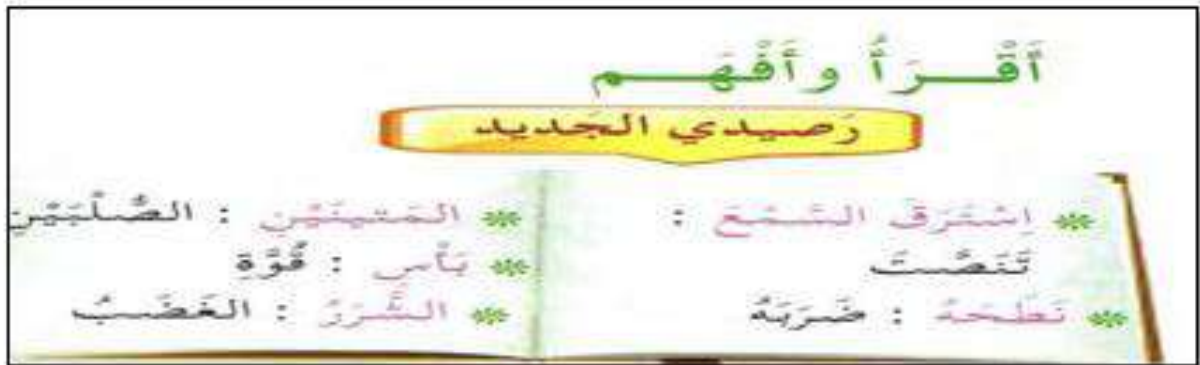 أَقْــرَأُ وأَفْهَــم
رَصيدي الجَديد
* اِسْتَرَقَ السَّمْعَ :
تَنَصَّتَ
* نَطَحَهُ : ضَرَبَهُ
* المَتينَيْنِ : الصُّلْبَيْنِ
* بَأْسٍ : قُوَّةٍ
* الشَّرَرُ : الغَضَبُ